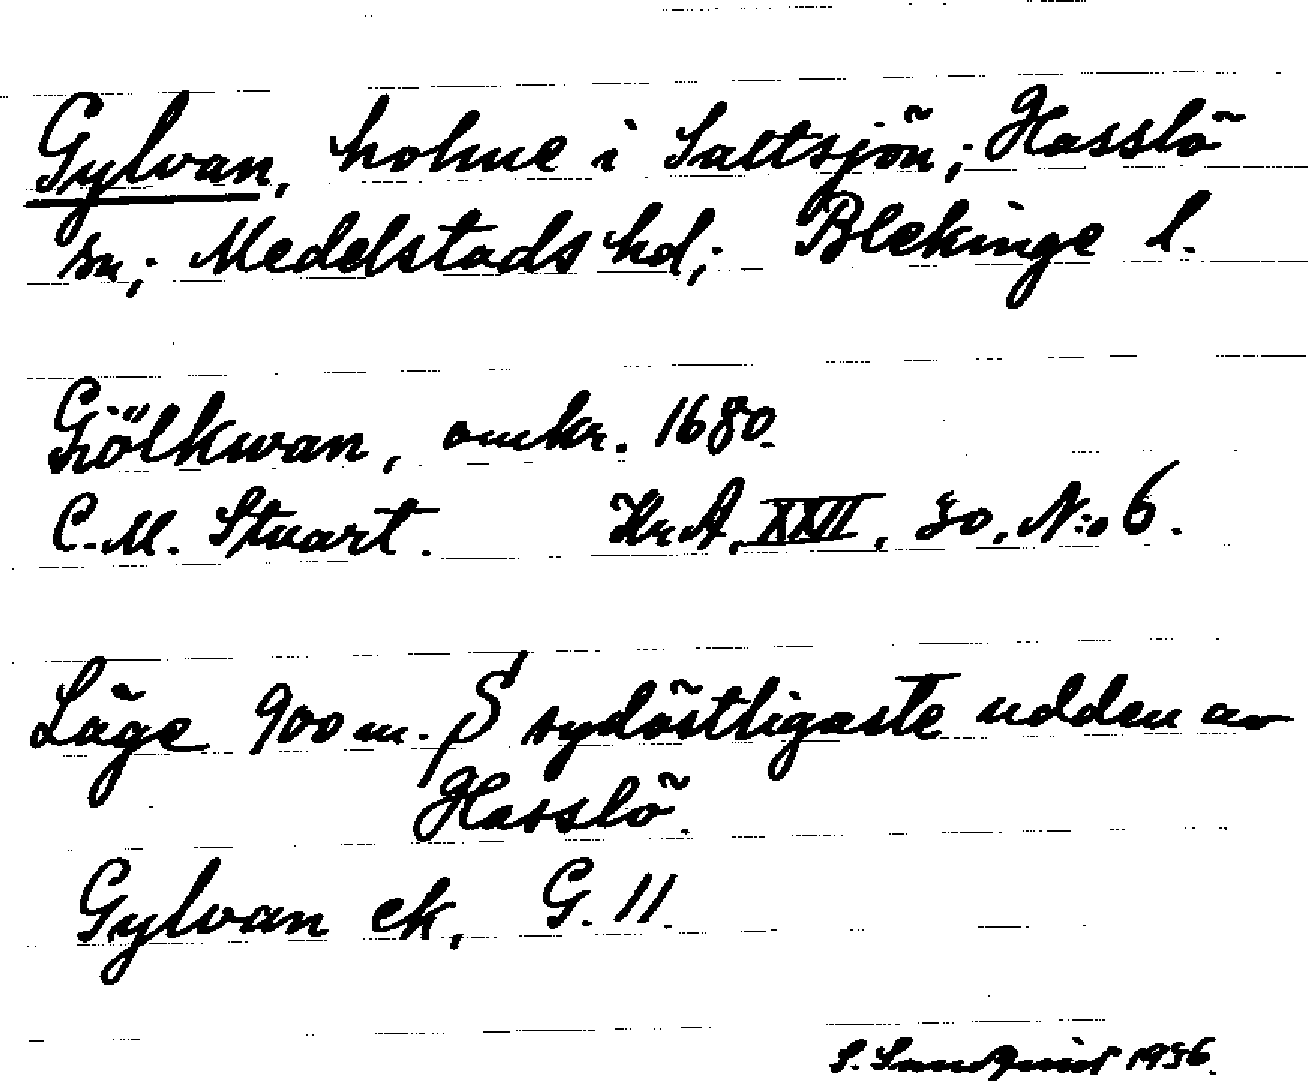 Gylvan, holme i Saltsjön; Hasslö
sn; Medelstads hd; Blekinge l.
Giölkwan, omkr. 1680.
C.M. Stuart. Kr.A. XXII, 30, N:o 6.
Läge 900 m. S sydöstligaste udden av
Hasslö.
Gylvan ek, G. 11.
S. Sundquist 1936.